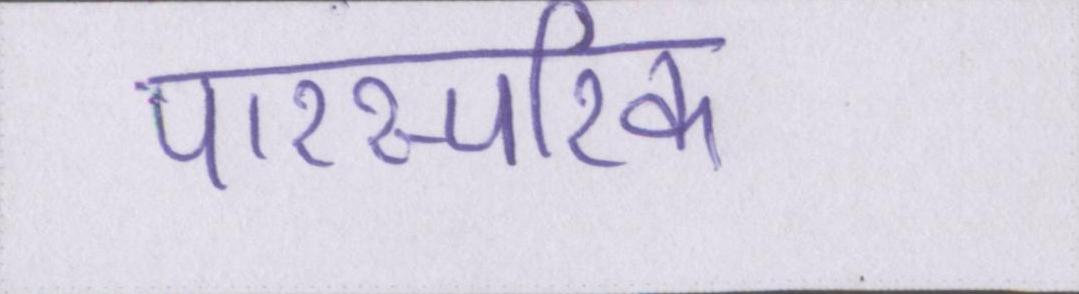 पारस्परिक